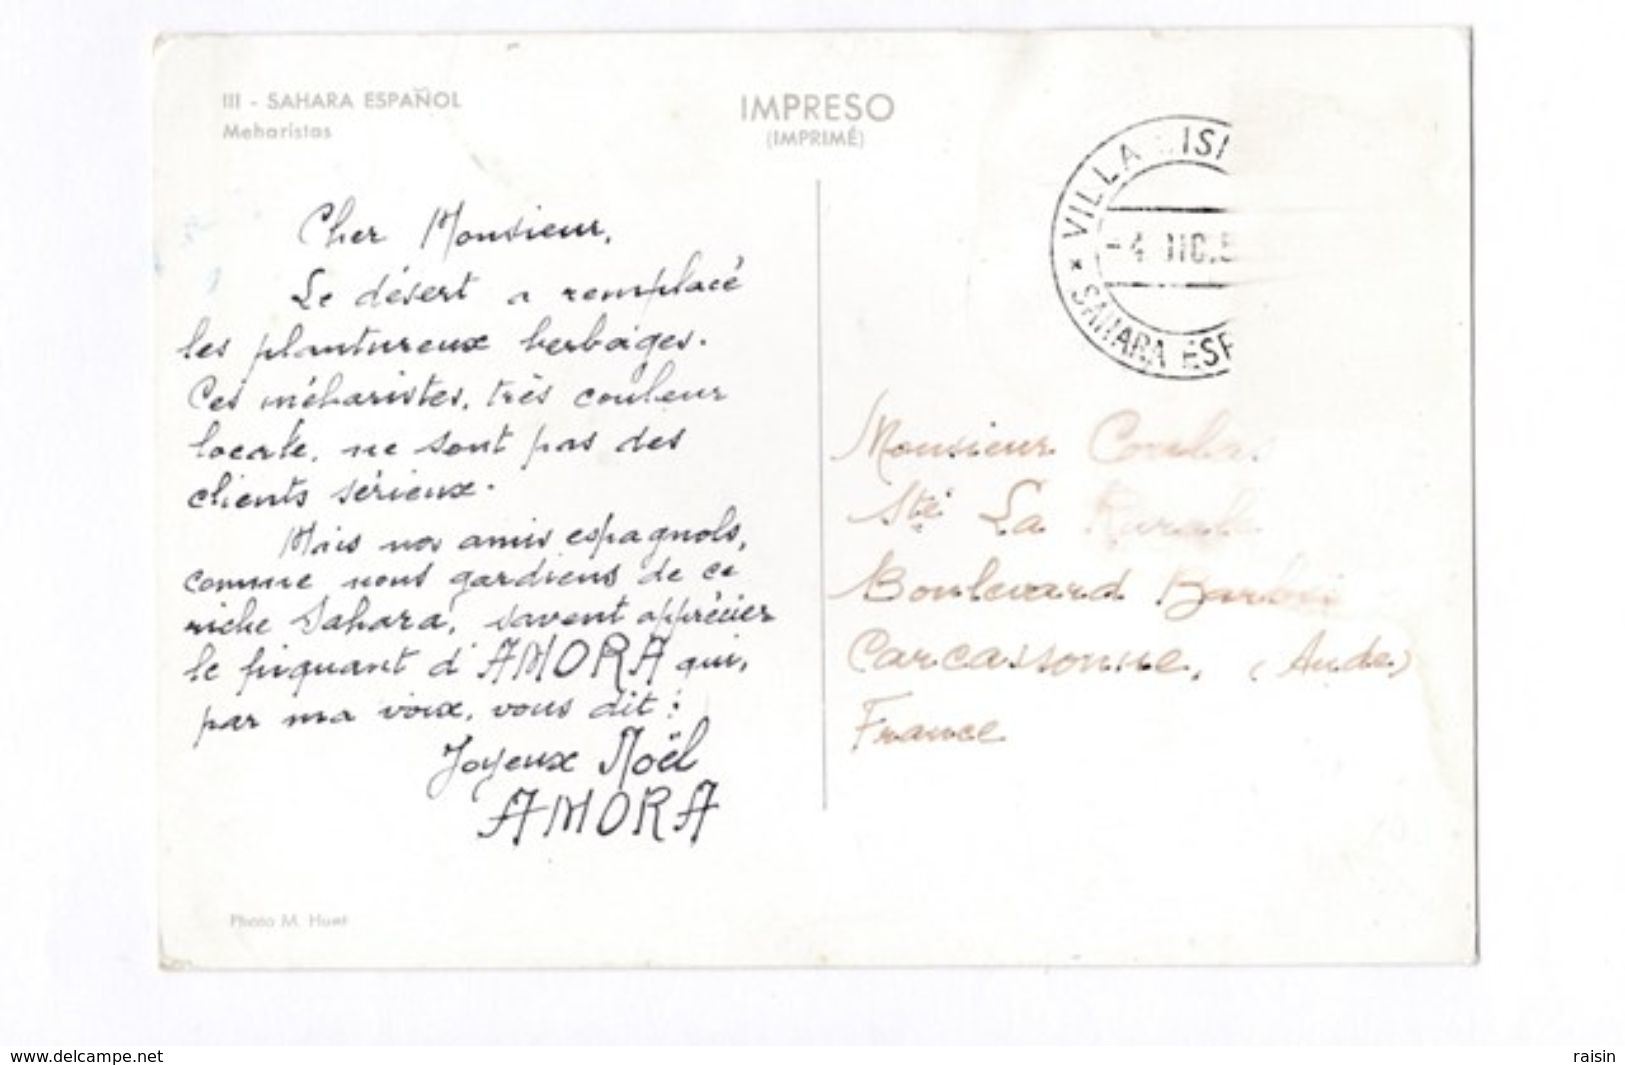 III - SAHARA ESPAÑOL
Meharistas
IMPRESO
(IMPRIMÉ)
VILLA CISN
-4 DIC.5
* SAHARA ESP
Cher Monsieur,
Le désert a remplacé
les plantureux herbages.
Ces méharistes, très couleur
locale, ne sont pas des
clients sérieux.
Mais nos amis espagnols,
comme nous gardiens de ce
riche Sahara, savent apprécier
le piquant d'AMORA qui,
par ma voix, vous dit :
Joyeux Noël
AMORA
Photo M. Huet
Monsieur
Sté La Rurale
Boulevard
Carcassonne, (Aude)
France
delcampe.net
raisin